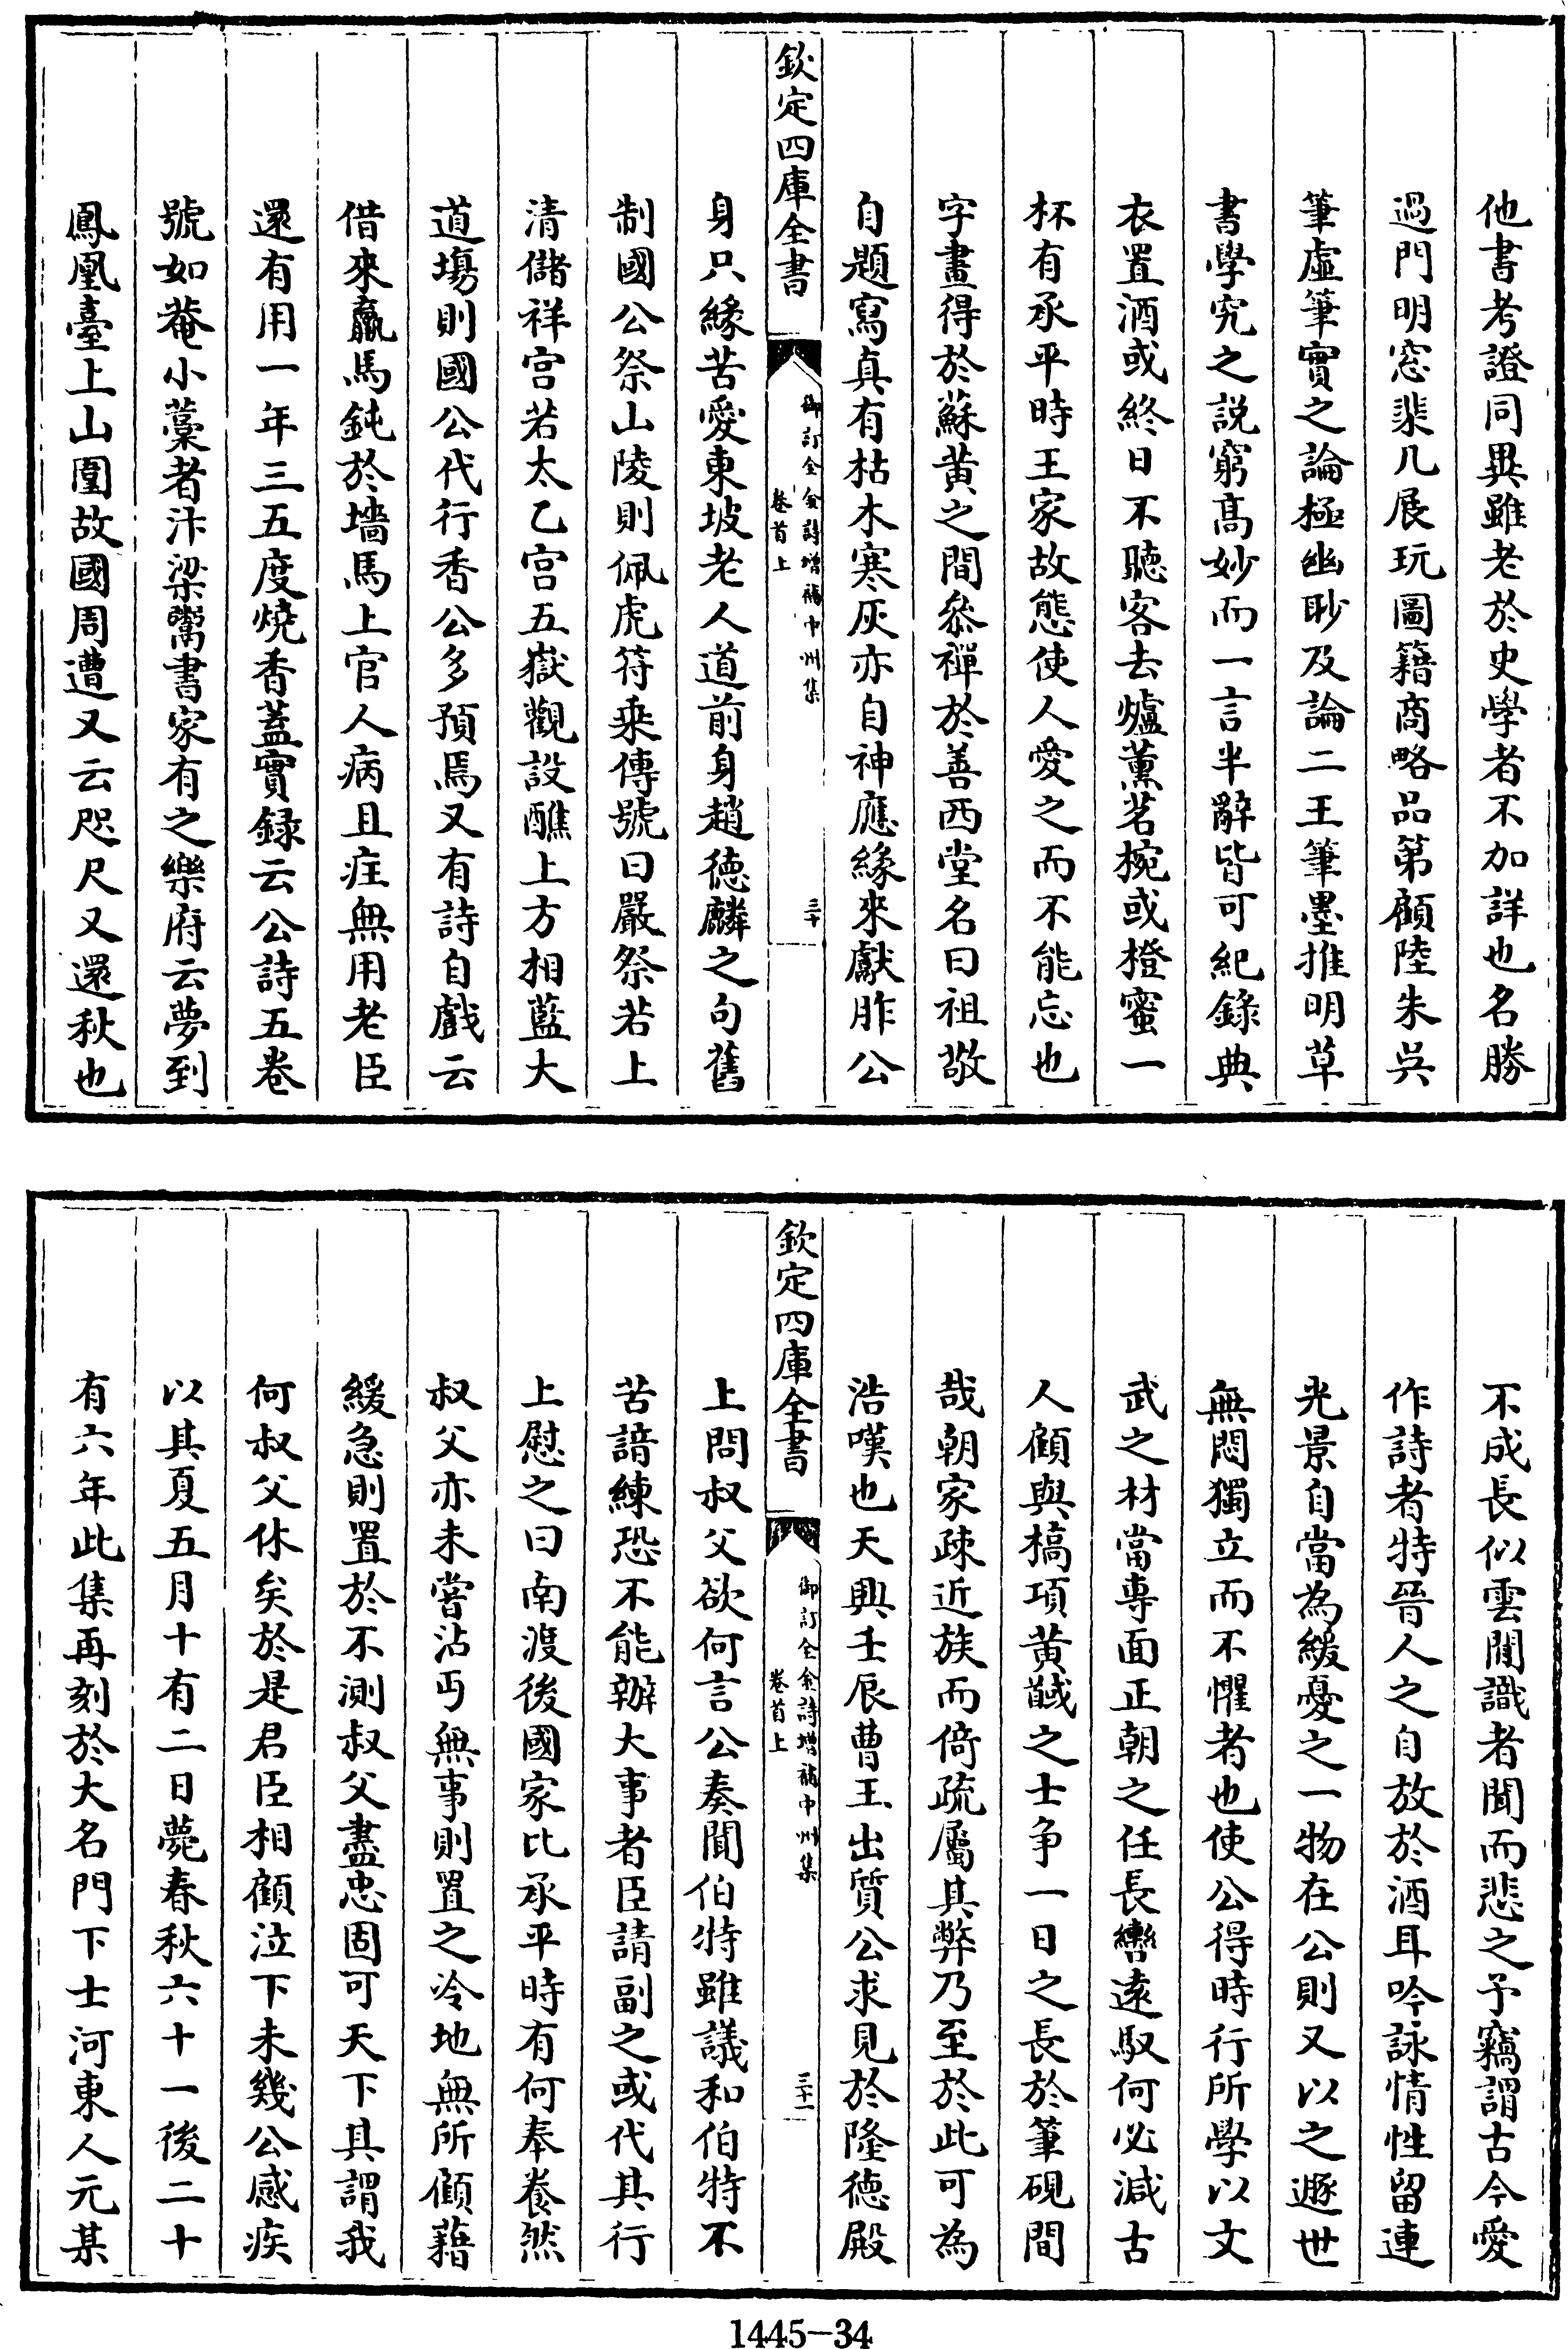 他書考證同異雖老於史學者不加詳也名勝
過門明窓棐几展玩圖籍商略品第顧陸朱吳
筆虛筆實之論極幽眇及論二王筆墨推明草
書學究之説窮髙妙而一言半辭皆可紀錄典
衣置酒或終日不聽客去爐薰茗椀或橙蜜一
杯有承平時王家故態使人愛之而不能忘也
字畫得於蘇黄之間叅禪於善西堂名曰祖敬
自題寫真有枯木寒灰亦自神應緣來獻胙公
欽定四庫全書
御訂全金詩增補中州集
卷首上
三十
身只緣苦愛東坡老人道前身趙徳麟之句舊
制國公祭山陵則佩虎符乘傳號曰嚴祭若上
清儲祥宫若太乙宫五嶽觀設醮上方相藍大
道塲則國公代行香公多預焉又有詩自戲云
借來羸馬鈍於墻馬上官人病且尫無用老臣
還有用一年三五度燒香蓋實録云公詩五巻
號如菴小藁者汴梁鬻書家有之樂府云夢到
鳳凰臺上山圍故國周遭又云咫尺又還秋也
不成長似雲閒識者聞而悲之予竊謂古今愛
作詩者特晉人之自放於酒耳吟詠情性留連
光景自當為緩憂之一物在公則又以之遯世
無悶獨立而不懼者也使公得時行所學以文
武之材當専面正朝之任長轡逺馭何必減古
人顧與槁項黄馘之士争一日之長於筆硯間
哉朝家疎近族而倚疏屬其弊乃至於此可為
浩嘆也天興壬辰曹王出質公求見於隆徳殿
欽定四庫全書
御訂全金詩增補中州集
卷首上
三十一
上問叔父欲何言公奏聞伯特雖議和伯特不
苦諳練恐不能辦大事者臣請副之或代其行
上慰之曰南渡後國家比承平時有何奉養然
叔父亦未嘗沾丐無事則置之冷地無所顧藉
緩急則置於不測叔父盡忠固可天下其謂我
何叔父休矣於是君臣相顧泣下未幾公感疾
以其夏五月十有二日薨春秋六十一後二十
有六年此集再刻於大名門下士河東人元某
1445-34